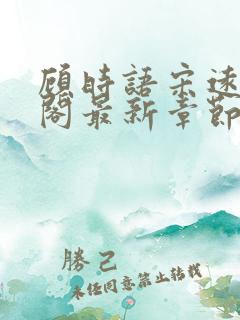 顾時語宋遠
閣最新章節
勝己
未经同意禁止转载